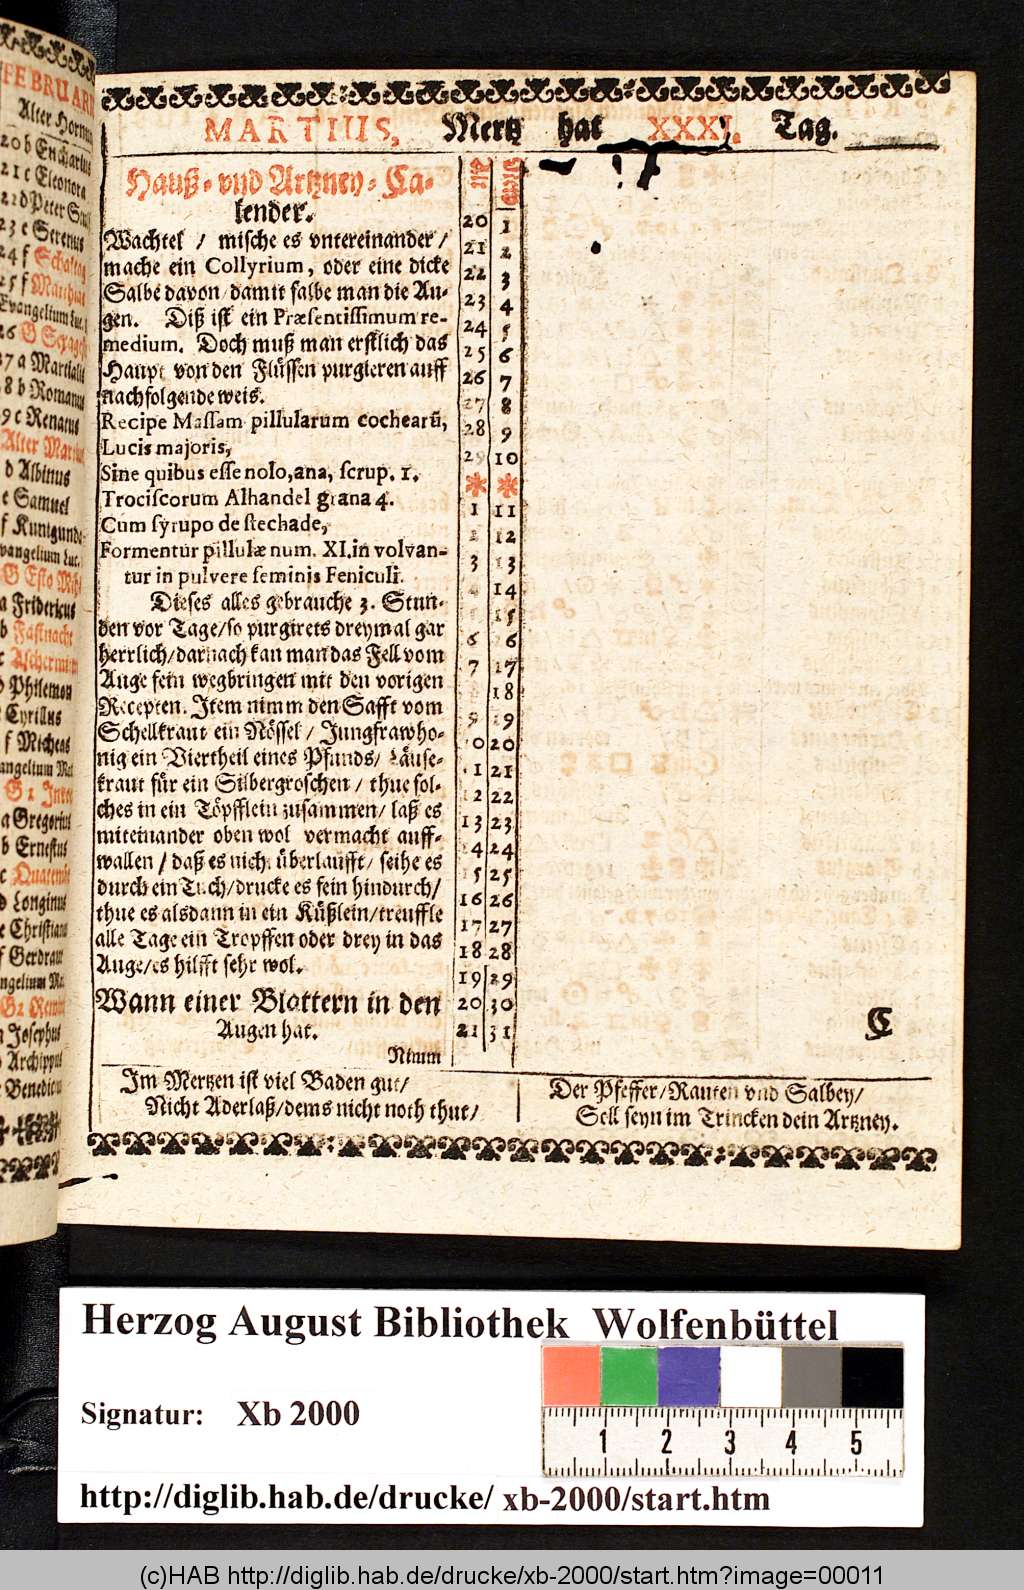 FEBRUARI
Alter Hornung
20 b Eucharius
21 c Eleonora
22 d Peter
23 e Serenus
24 f Schalttag
25 f Matthias
Evangelium Luc.
26 G
27 a Martialis
28 b Romanus
29 c Renatus
Alter Martius
d Albinus
e Samuel
f Kunigunde
Evangelium Luc.
G Esto Mihi
a Fridericus
b Fastnacht
c Aschermitt
d Philemon
e Cyrillus
f Micheas
angelium Mat
G 1 Invoc
a Gregorius
b Ernestus
c Quatember
d Longinus
e Christian
f Gerdraut
angelium Ma
G 2 Remin
a Josephus
b Archippus
c Benedictus
MARTIUS, Mertz hat XXXI. Tag.
Hauß- vnd Artzney-Ca-
lender.
Wachtel / mische es vntereinander /
mache ein Collyrium, oder eine dicke
Salbe davon / damit salbe man die Au-
gen. Diß ist ein Præsentissimum re-
medium. Doch muß man erstlich das
Haupt von den Flüssen purgieren auff
nachfolgende weis.
Recipe Massam pillularum cochearū,
Lucis majoris,
Sine quibus esse nolo, ana, scrup. 1.
Trociscorum Alhandel grana 4.
Cum syrupo de stechade,
Formentur pillulæ num. XI. in volvan-
tur in pulvere seminis Feniculi.
Dieses alles gebrauche 3. Stun-
den vor Tage / so purgirets dreymal gar
herrlich / darnach kan man das Fell vom
Auge fein wegbringen mit den vorigen
Recepten. Item nimm den Safft vom
Schellkraut ein Nössel / Jungfrawho-
nig ein Viertheil eines Pfunds / Läuse-
kraut für ein Silbergroschen / thue sol-
ches in ein Töpfflein zusammen / laß es
miteinander oben wol vermacht auff-
wallen / daß es nicht überlaufft / seihe es
durch ein Tuch / drucke es fein hindurch /
thue es alsdann in ein Küßlein / treuffle
alle Tage ein Tropffen oder drey in das
Auge / es hilfft sehr wol.
Wann einer Blattern in den
Augen hat.
Nimm
Alt Newe
20 1
21 2
22 3
23 4
24 5
25 6
26 7
27 8
28 9
29 10
* *
1 11
2 12
3 13
4 14
15
6 16
7 17
18
9 19
10 20
11 21
12 22
13 23
14 24
15 25
16 26
17 27
18 28
19 29
20 30
21 31
C
Im Mertzen ist viel Baden gut /
Nicht Aderlaß / dems nicht noth thut /
Der Pfeffer / Rauten vnd Salbey /
Sell seyn im Trincken dein Artzney.
Herzog August Bibliothek Wolfenbüttel
Signatur: Xb 2000
1 2 3 4 5
http://diglib.hab.de/drucke/ xb-2000/start.htm
(c)HAB http://diglib.hab.de/drucke/xb-2000/start.htm?image=00011